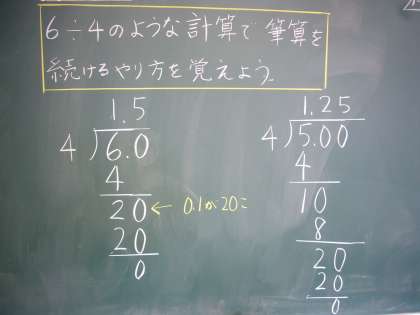 6÷4のような計算で筆算を
続けるやり方を覚えよう。
1.5
4)6.0
4
20 ← 0.1が20こ
20
0
1.25
4)5.00
4
10
8
20
20
0